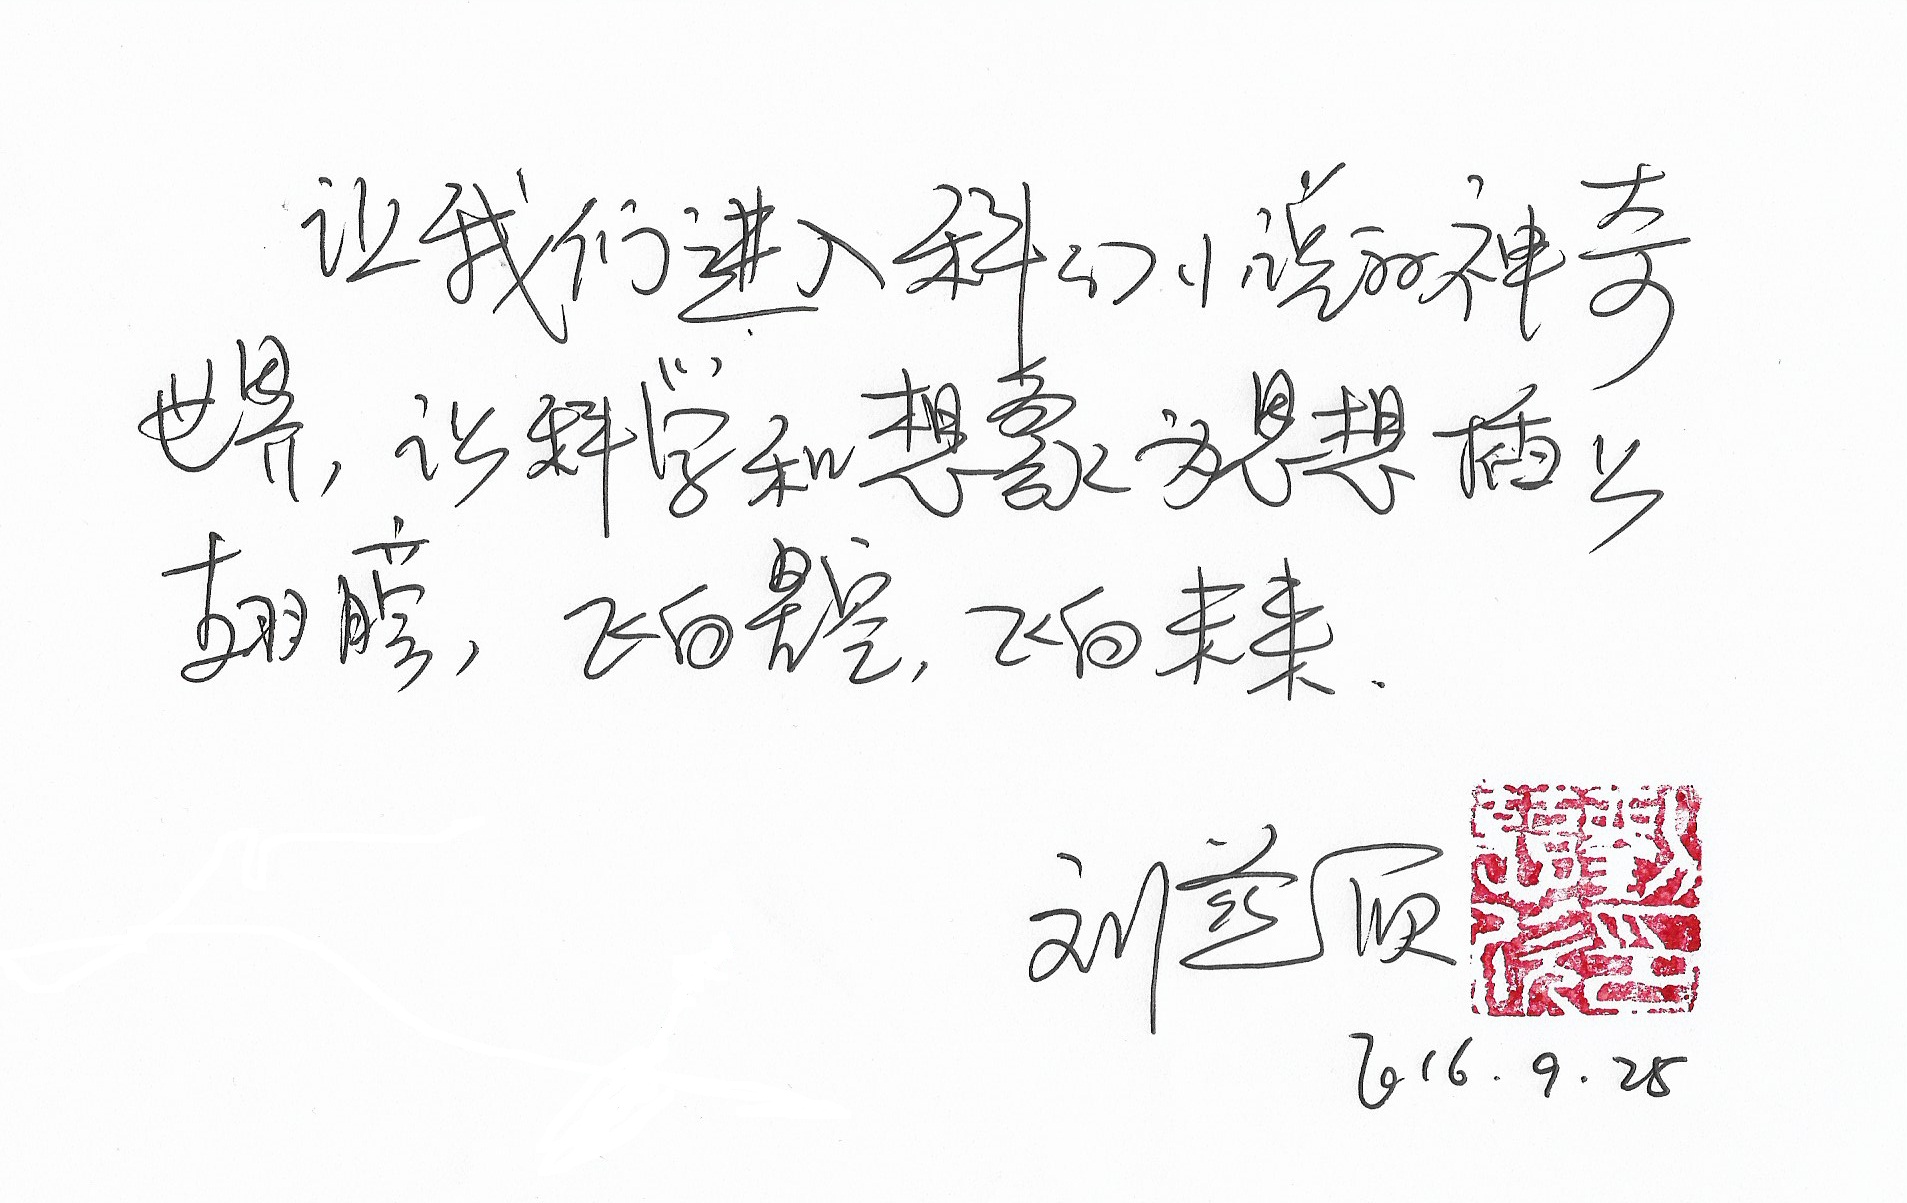 让我们进入科幻小说的神奇
世界，让科学和想象为思想插上
翅膀，飞向星空，飞向未来.
刘慈欣
2016.9.25